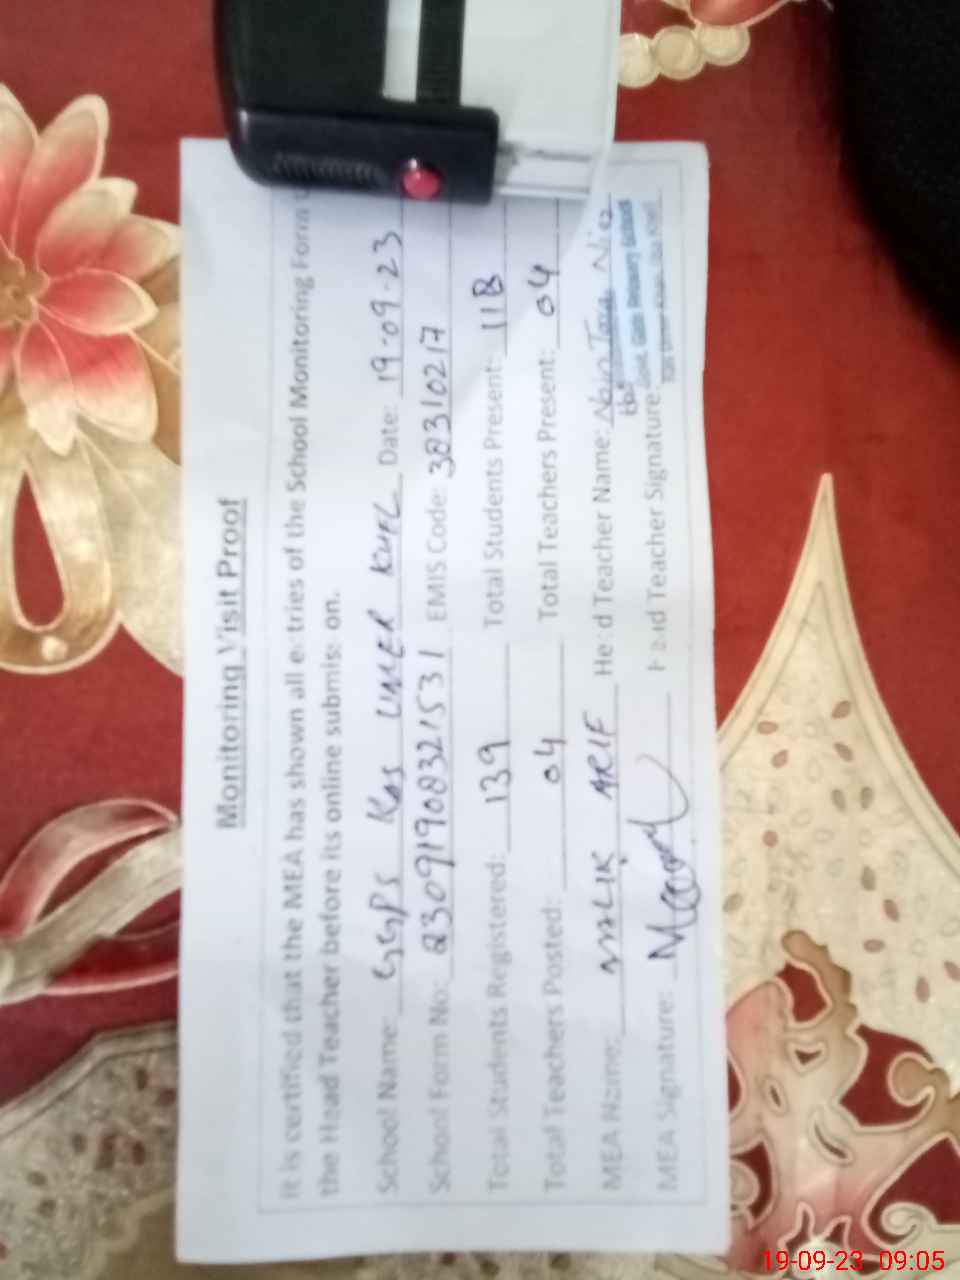 Monitoring Visit Proof
It is certified that the MEA has shown all entries of the School Monitoring Form
the Head Teacher before its online submission.
School Name: GGPS Kas UMER KHEL Date: 19-09-23
School Form No: 2309190832153 EMIS Code: 38310217
Total Students Registered: 139 Total Students Present: 118
Total Teachers Posted: 04 Total Teachers Present: 04
MEA Name: MALIK ARIF Head Teacher Name:
MEA Signature: Head Teacher Signature:
Govt. Girls Primary School
19-09-23 09:05